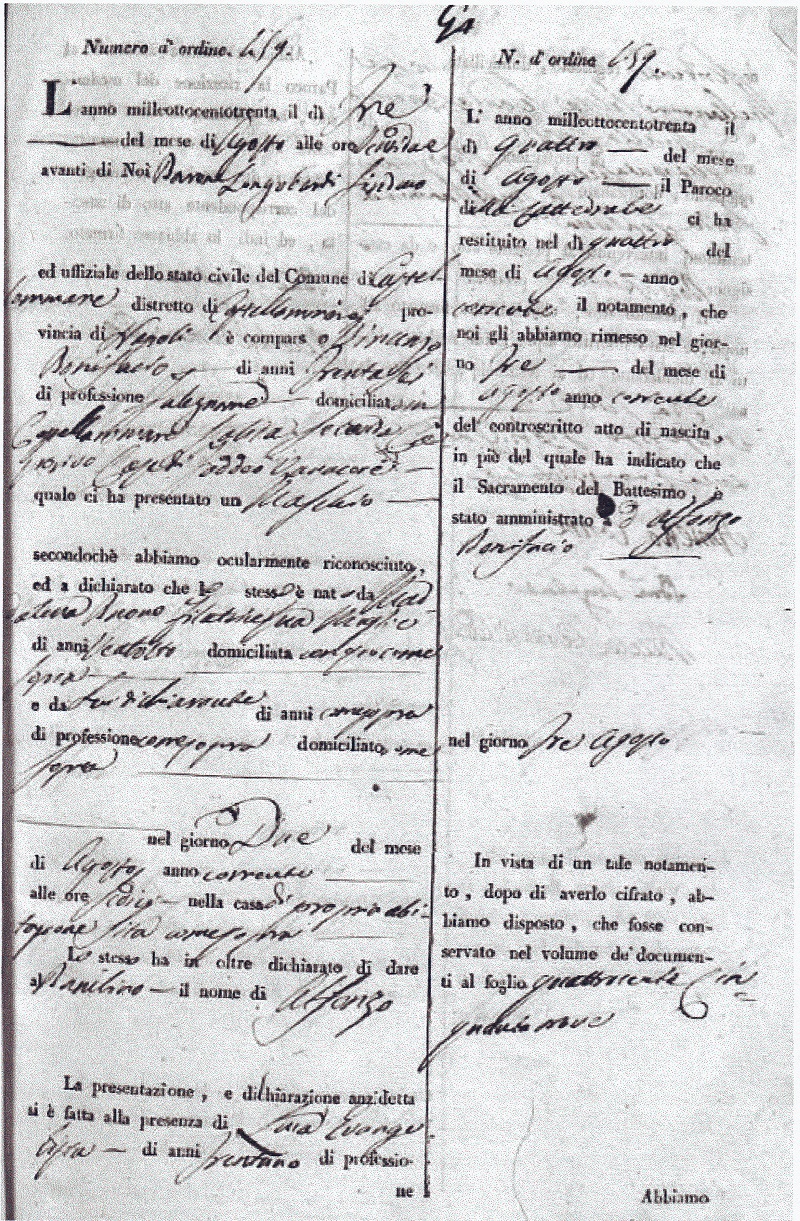 Numero d'ordine. 459.
L'anno milleottocentotrenta il dì Tre
del mese di Agosto alle ore
avanti di Noi Longobardi Sindaco
ed uffiziale dello stato civile del Comune di Castel
lammare distretto di Castellammare pro-
vincia di Napoli è comparso Vincenzo
Bonifacio di anni Trentasei
di professione Falegname domiciliato in
Castellammare Strada
Case di
quale ci ha presentato un Maschio
secondochè abbiamo ocularmente riconosciuto,
ed a dichiarato che lo stesso è nato da Mad
dalena Buono Filatrice sua moglie
di anni domiciliata con lui come
sopra
e da Lui dichiarante di anni come sopra
di professione come sopra domiciliato come
sopra
nel giorno Due del mese
di Agosto anno corrente
alle ore sedici nella casa di propria abi-
tazione sita come sopra
Lo stesso ha in oltre dichiarato di dare
al Bambino il nome di Alfonzo
La presentazione, e dichiarazione anzidetta
si è fatta alla presenza di Luca Evange
lista di anni Trentuno di professio-
ne
N. d'ordine 459.
L'anno milleottocentotrenta il
dì quattro del mese
di Agosto il Paroco
della Cattedrale ci ha
restituito nel dì quattro del
mese di Agosto anno
corrente il notamento, che
noi gli abbiamo rimesso nel gior-
no Tre del mese di
Agosto anno corrente
del controscritto atto di nascita,
in piè del quale ha indicato che
il Sacramento del Battesimo è
stato amministrato a Alfonzo
Bonifacio
nel giorno Tre Agosto
In vista di un tale notamen-
to, dopo di averlo cifrato, ab-
biamo disposto, che fosse con-
servato nel volume de' documen-
ti al foglio quattrocento Cin-
quantanove
Abbiamo